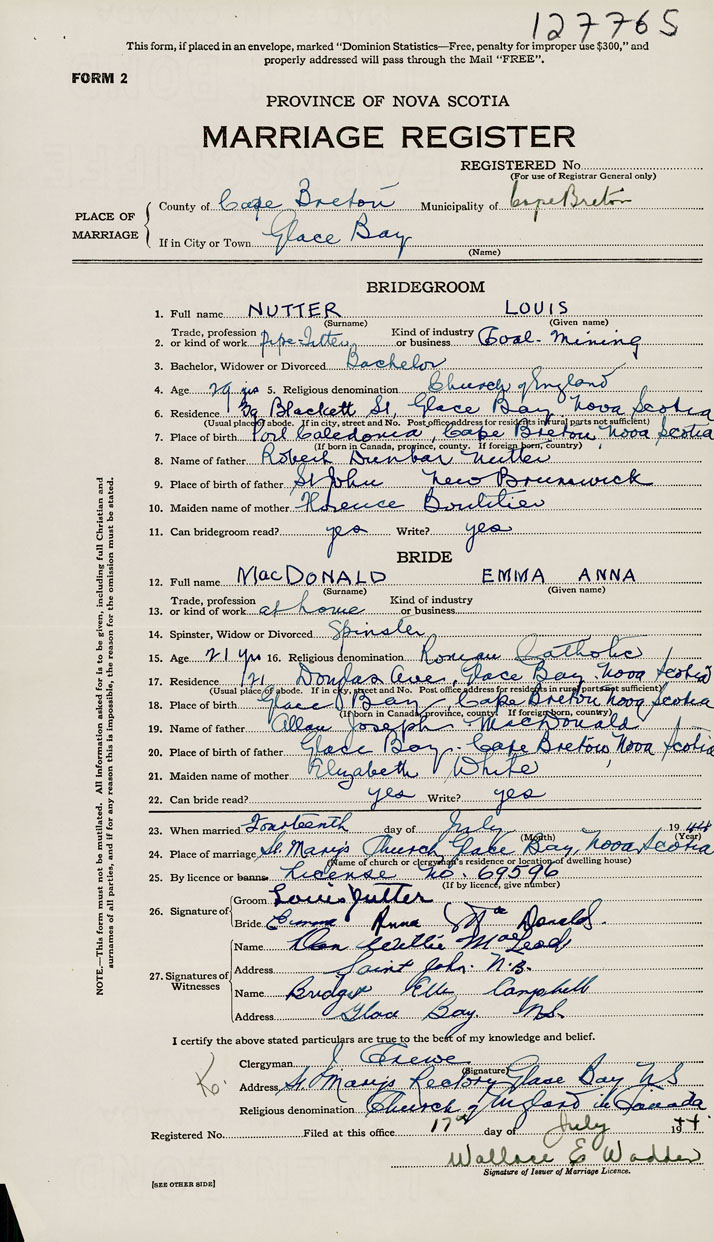 127765
This form, if placed in an envelope, marked "Dominion Statistics—Free, penalty for improper use $300," and
properly addressed will pass through the Mail "FREE".
FORM 2
PROVINCE OF NOVA SCOTIA
MARRIAGE REGISTER
REGISTERED No.
(For use of Registrar General only)
PLACE OF MARRIAGE
County of Cape Breton Municipality of Cape Breton
If in City or Town Glace Bay
(Name)
BRIDEGROOM
1. Full name NUTTER LOUIS
(Surname) (Given name)
2. Trade, profession or kind of work pipe-fitter Kind of industry or business Coal-Mining
3. Bachelor, Widower or Divorced Bachelor
4. Age 29 yrs 5. Religious denomination Church of England
6. Residence Blackett St, Glace Bay Nova Scotia
(Usual place of abode. If in city, street and No. Post office address for residents in rural parts not sufficient)
7. Place of birth Port Caledonia, Cape Breton Nova Scotia
(If born in Canada, province, county. If foreign born, country)
8. Name of father Robert Dunbar Nutter
9. Place of birth of father St John New Brunswick
10. Maiden name of mother Florence Boutilier
11. Can bridegroom read? yes Write? yes
BRIDE
12. Full name MacDONALD EMMA ANNA
(Surname) (Given name)
13. Trade, profession or kind of work at home Kind of industry or business
14. Spinster, Widow or Divorced Spinster
15. Age 21 yrs 16. Religious denomination Roman Catholic
17. Residence 121 Douglas Ave, Glace Bay Nova Scotia
(Usual place of abode. If in city, street and No. Post office address for residents in rural parts not sufficient)
18. Place of birth Glace Bay Cape Breton Nova Scotia
(If born in Canada, province, county. If foreign born, country)
19. Name of father Allan Joseph MacDonald
20. Place of birth of father Glace Bay - Cape Breton, Nova Scotia
21. Maiden name of mother Elizabeth White
22. Can bride read? yes Write? yes
23. When married Fourteenth day of July 1944
(Month) (Year)
24. Place of marriage St. Mary's Church, Glace Bay, Nova Scotia
(Name of church or clergyman's residence or location of dwelling house)
25. By licence or banns License No. 69596
(If by licence, give number)
26. Signature of
Groom Louis Nutter
Bride Emma Anna MacDonald
27. Signatures of Witnesses
Name Dan Willie MacLeod
Address Saint John. N.B.
Name Campbell
Address Glace Bay, N.S.
I certify the above stated particulars are true to the best of my knowledge and belief.
Clergyman J Crewe
(Signature)
Address St. Mary's Rectory Glace Bay NS
Religious denomination Church of England in Canada
Registered No. Filed at this office 17th day of July 1944.
Wallace E Wadden
Signature of Issuer of Marriage Licence.
[SEE OTHER SIDE]
NOTE.—This form must not be mutilated. All information asked for is to be given, including full Christian and
surnames of all parties, and if for any reason this is impossible, the reason for the omission must be stated.